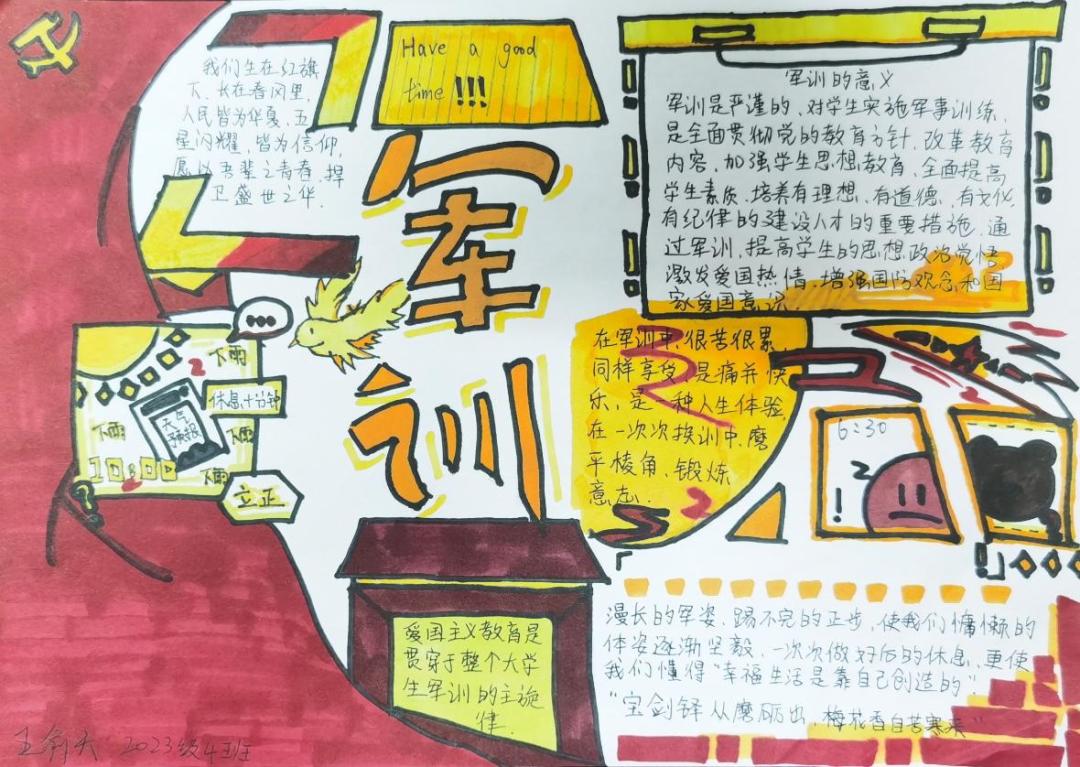 我们生在红旗
下、长在春风里,
人民皆为华夏,五
星闪耀,皆为信仰,
愿以吾辈之青春,捍
卫盛世之华.
Have a good
time !!!
军训
军训的意义
军训是严谨的、对学生实施军事训练,
是全面贯彻党的教育方针、改革教育
内容、加强学生思想教育、全面提高
学生素质、培养有理想、有道德、有文化、
有纪律的建设人才的重要措施.通
过军训,提高学生的思想政治觉悟
激发爱国热情、增强国防观念和国
家爱国意识.
下雨
休息十分钟
天气
预报
下雨
下雨
下雨
立正
在军训中,很苦很累,
同样享受,是痛并快
乐,是一种人生体验,
在一次次
训中、磨
平棱角、锻炼
意志.
6:30
z
!
爱国主义教育是
贯穿于整个大学
生军训的主旋
律.
漫长的军姿、踢不完的正步,使我们慵懒的
体姿逐渐坚毅、一次次做好后的休息、更使
我们懂得“幸福生活是靠自己创造的”.
“宝剑锋从磨砺出,梅花香自苦寒来”
2023级4班